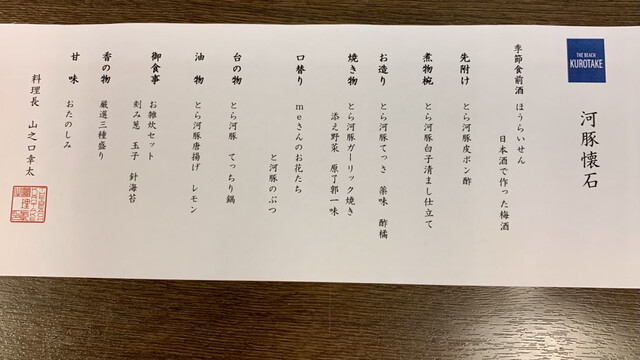 THE BEACH
KUROTAKE
河豚懐石
季節食前酒 ほうらいせん
日本酒で作った梅酒
先附け とら河豚皮ポン酢
煮物椀 とら河豚白子清まし仕立て
お造り とら河豚てっさ 薬味 酢橘
焼き物 とら河豚ガーリック焼き
添え野菜 原了郭一味
口替り meさんのお花たち
と河豚のぶつ
台の物 とら河豚 てっちり鍋
油物 とら河豚唐揚げ レモン
御食事 お雑炊セット
刻み葱 玉子 針海苔
香の物 厳選三種盛り
甘味 おたのしみ
料理長 山之口幸太